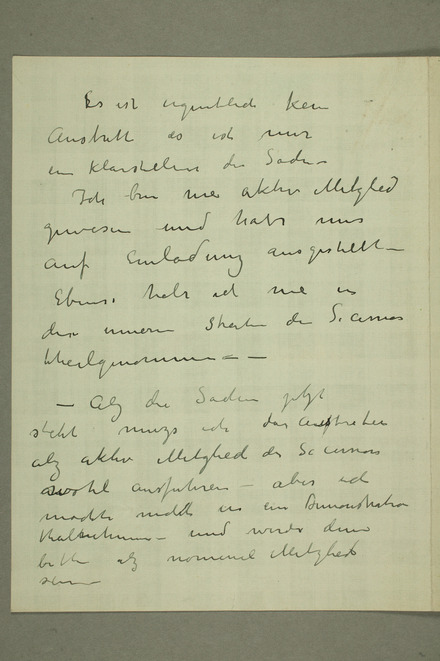 Es ist eigentlich kein
Austritt es ist nur
ein Klarstellen der Sache –
Ich bin nie aktiv Mitglied
gewesen und habe nur
auf Einladung ausgestellt –
Ebenso habe ich nie in
den inneren der
theilgenommen –
– Alz die Sachen jetzt
steht muzs ich das
alz aktiv Mitglied der
wohl ausführen – aber ich
möchte nicht in ein Demonstration
theilnehmen – und werde denn
bitte alz nominel Mitglied
sein –